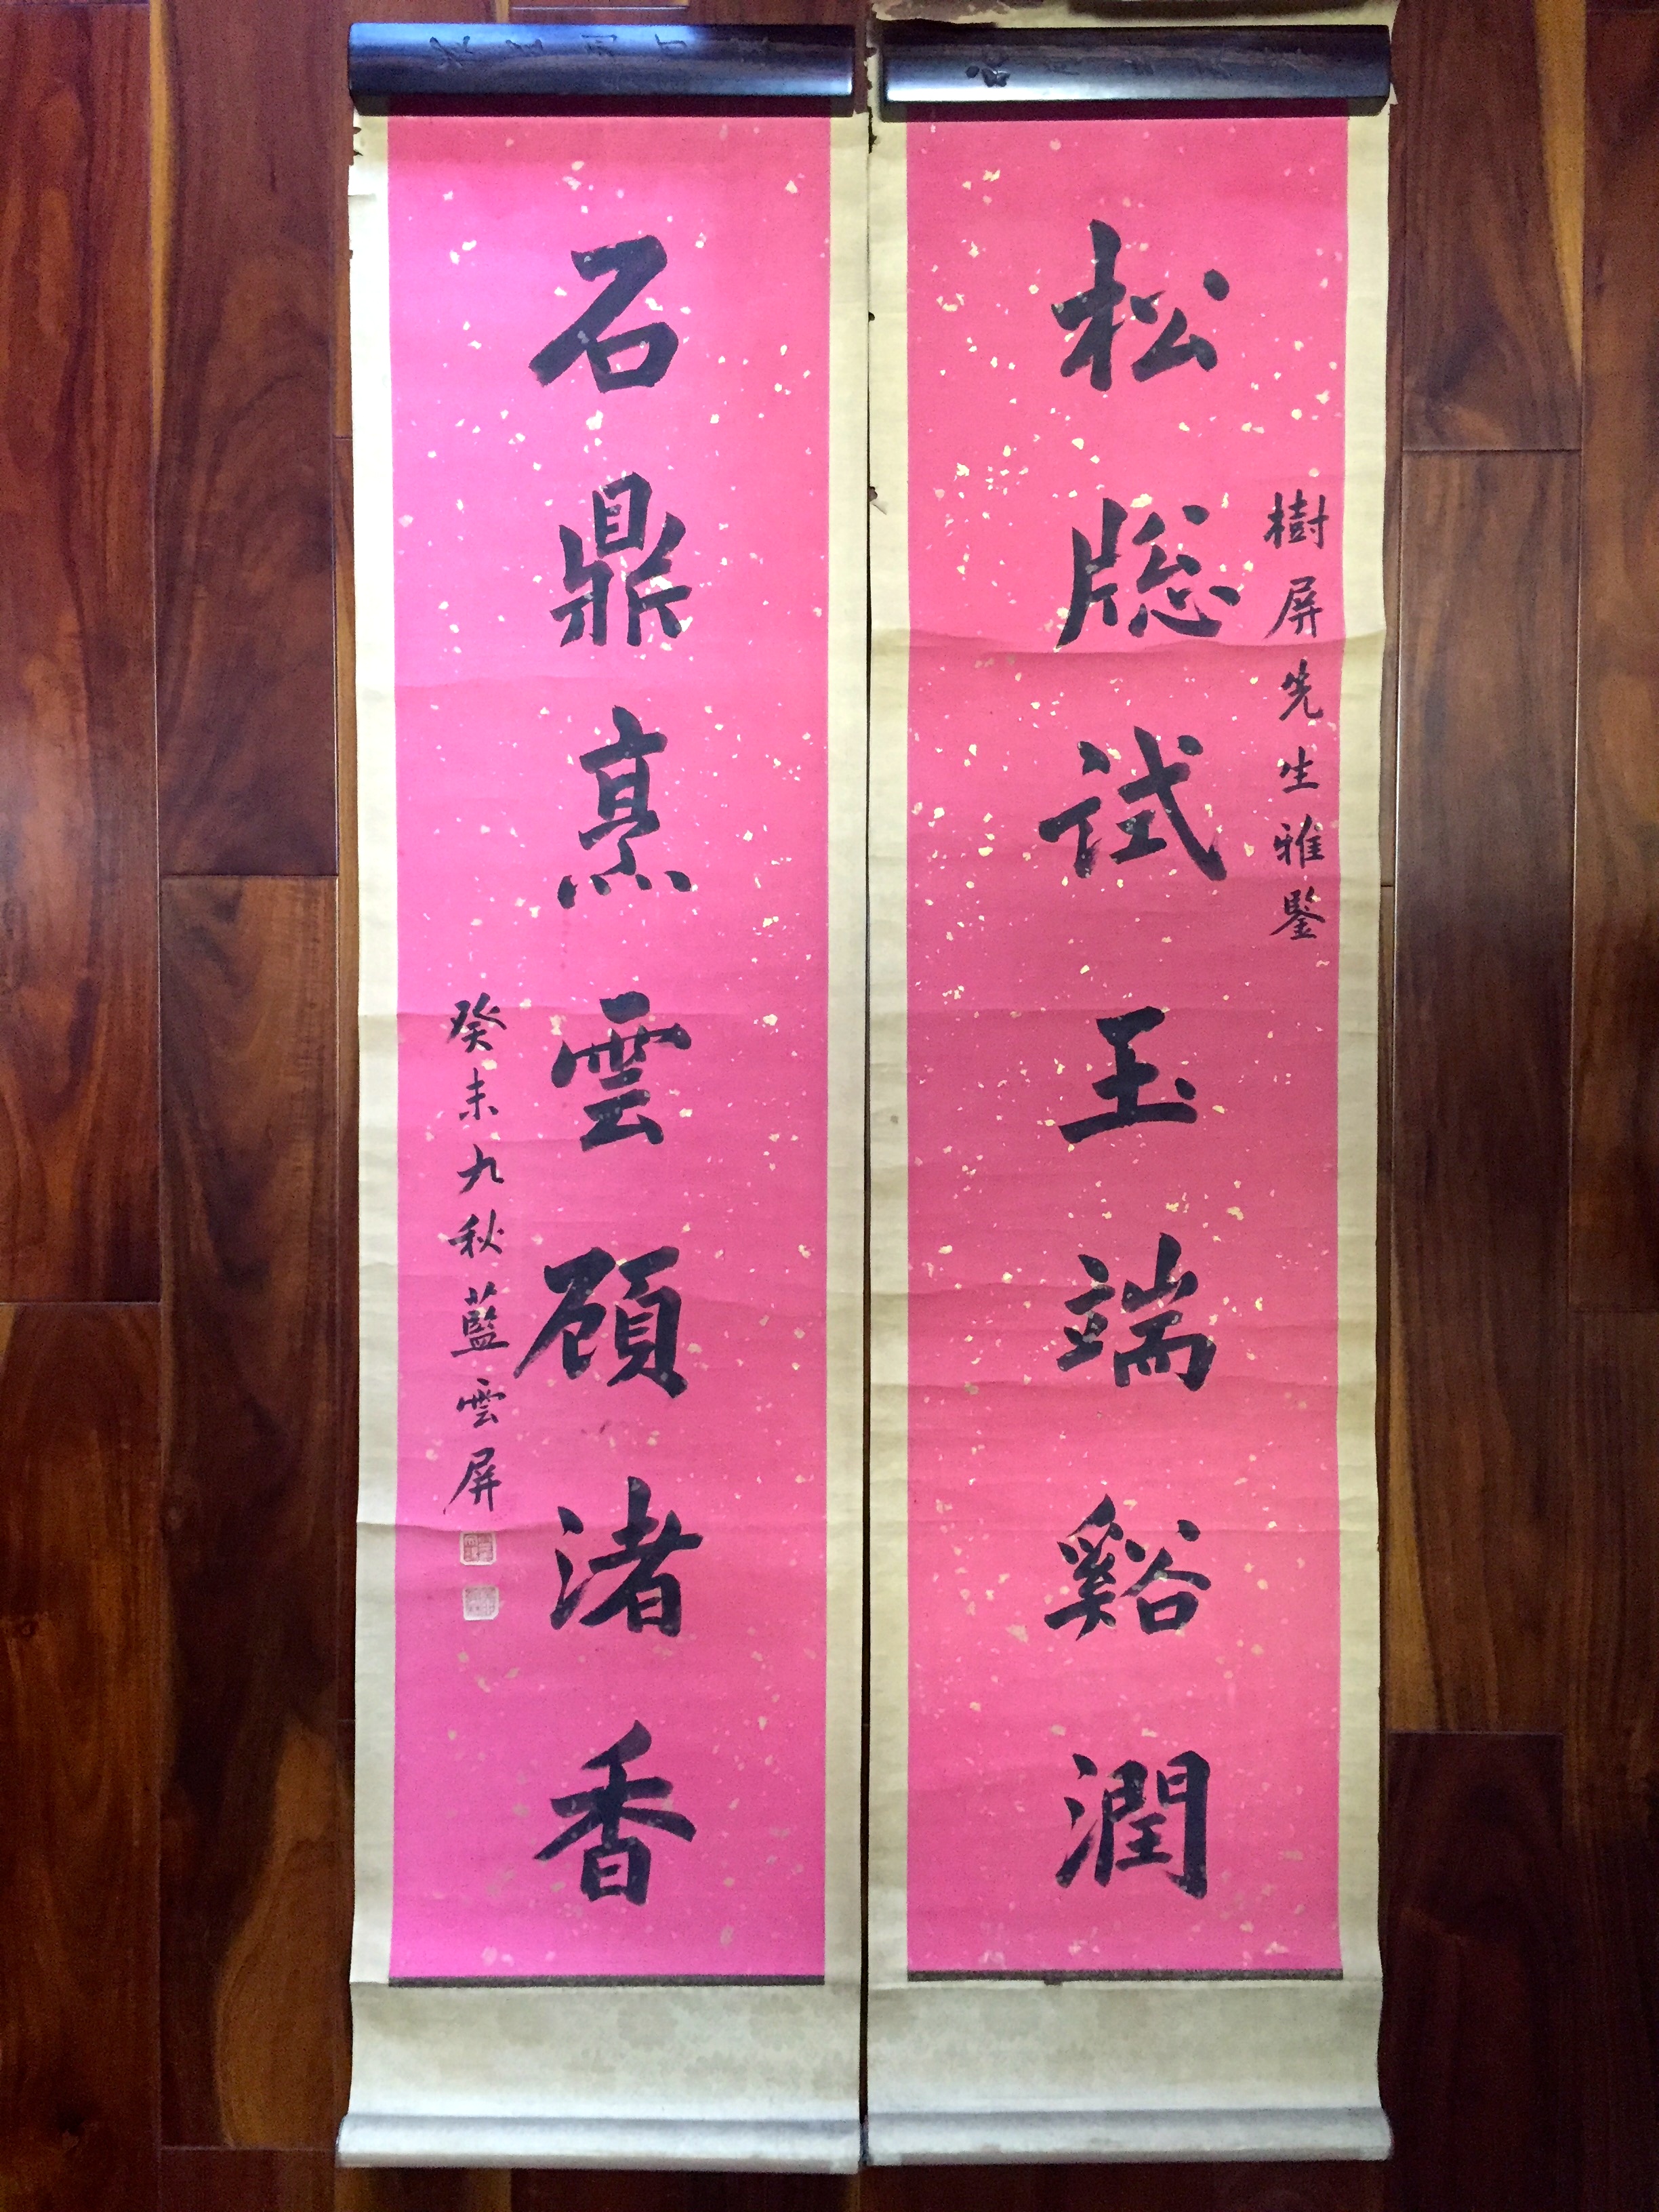 樹屏先生雅鑒
松牕試玉端谿潤
石鼎烹雲顧渚香
癸未九秋藍雲屏